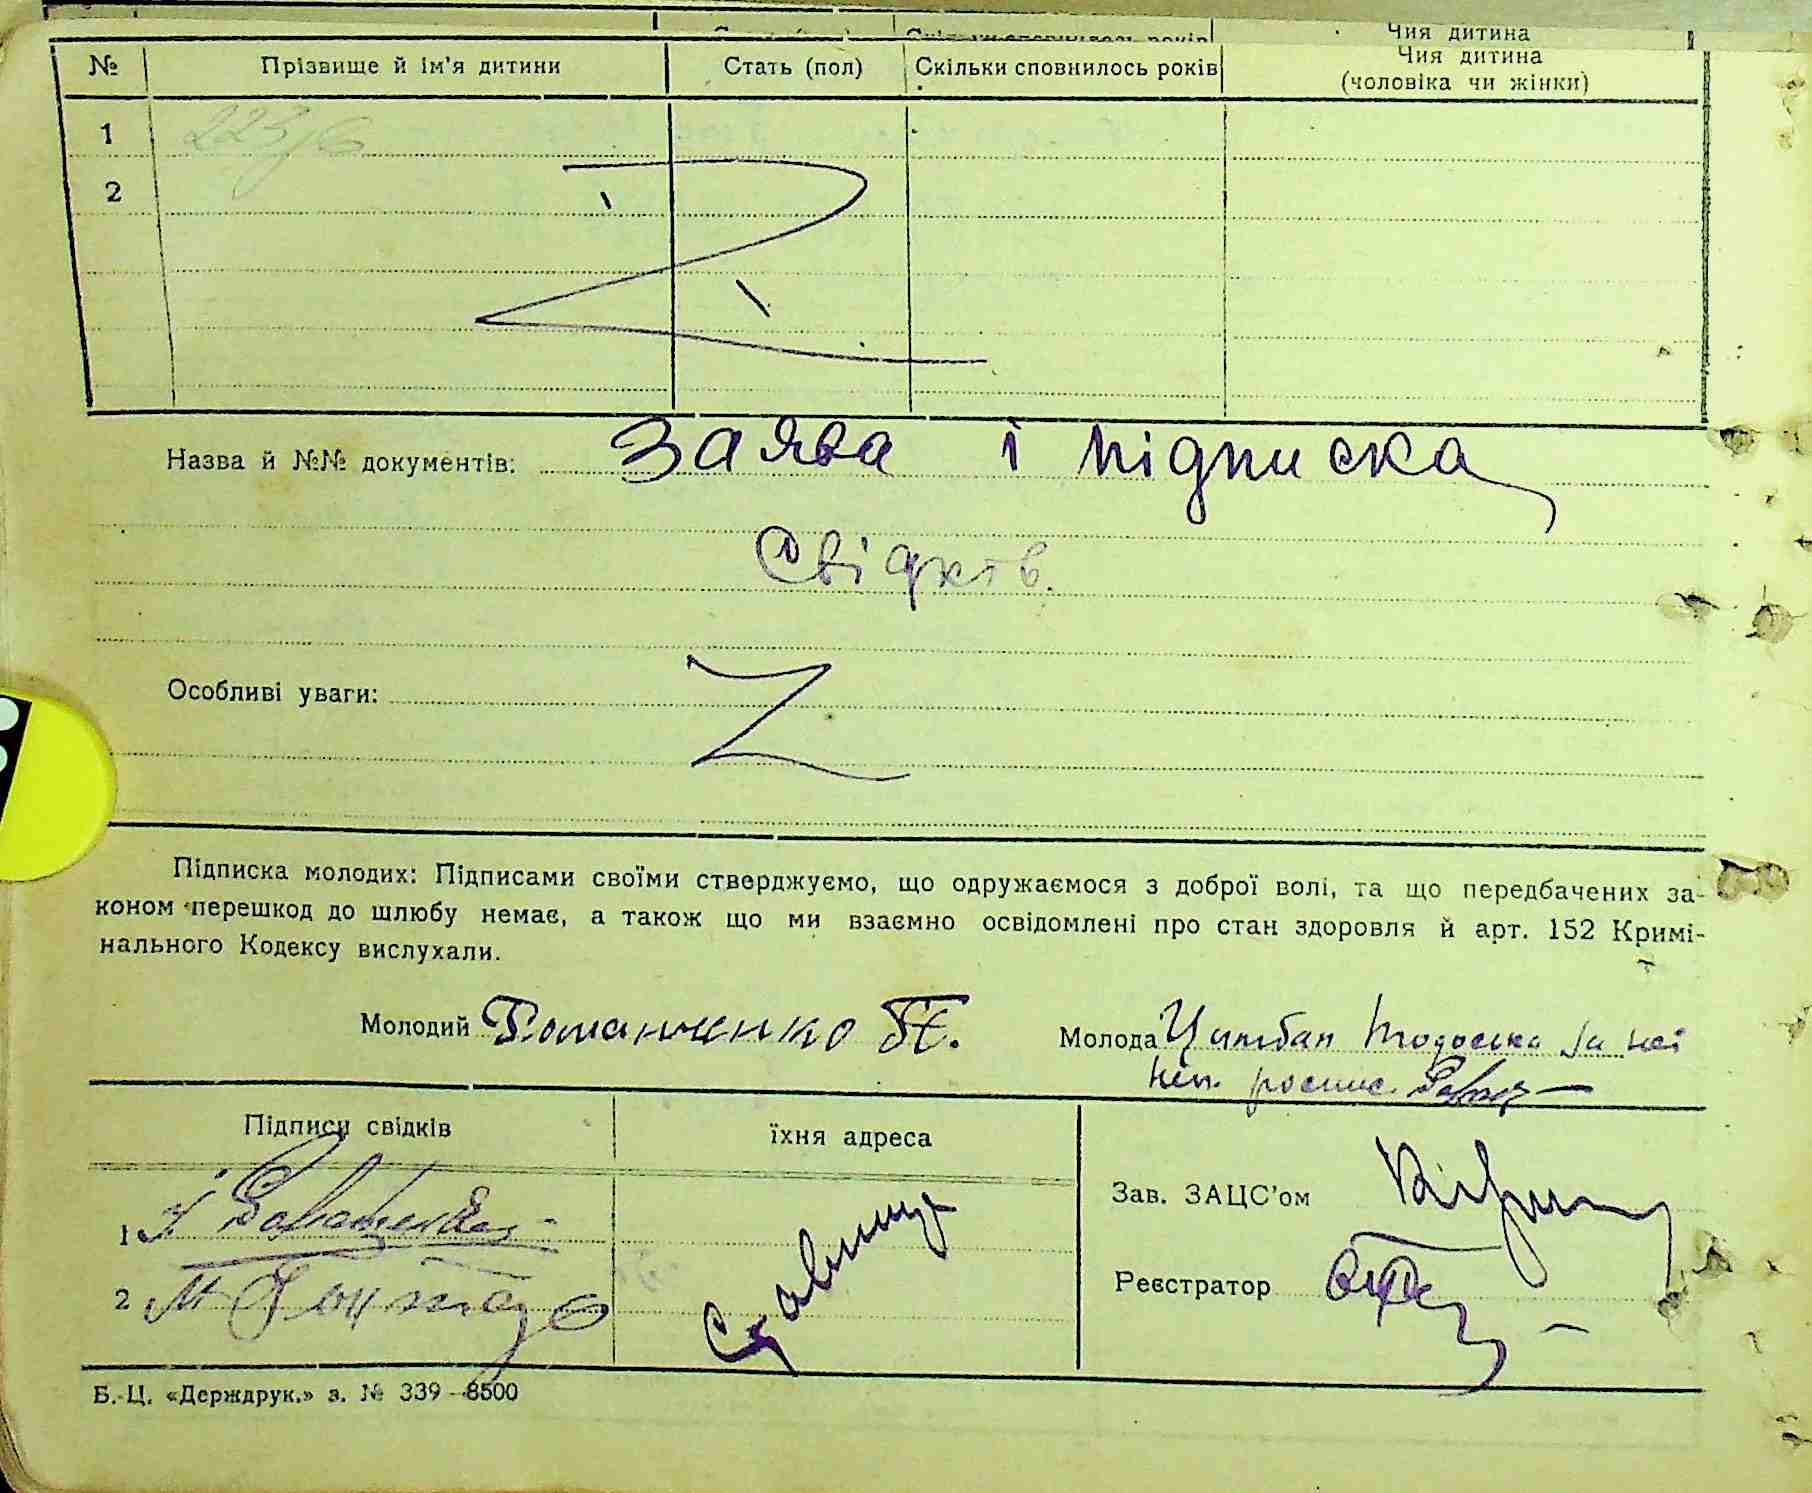 Чия дитина
№ Прізвище й ім'я дитини Стать (пол) Скільки сповнилось років Чия дитина
(чоловіка чи жінки)
1 223/6
2
Назва й №№ документів: Заява і підписка
Свідктв.
Особливі уваги:
Підписка молодих: Підписами своїми стверджуємо, що одружаємося з доброї волі, та що передбачених за-
коном перешкод до шлюбу немає, а також що ми взаємно освідомлені про стан здоровля й арт. 152 Кримі-
нального Кодексу вислухали.
Молодий Романченко Молода Цимбал Тодоска за неї
неп. роспис.
Підписи свідків їхня адреса
Зав. ЗАЦС'ом
1
Реєстратор
2
Б.-Ц. «Держдрук.» з. № 339—8500